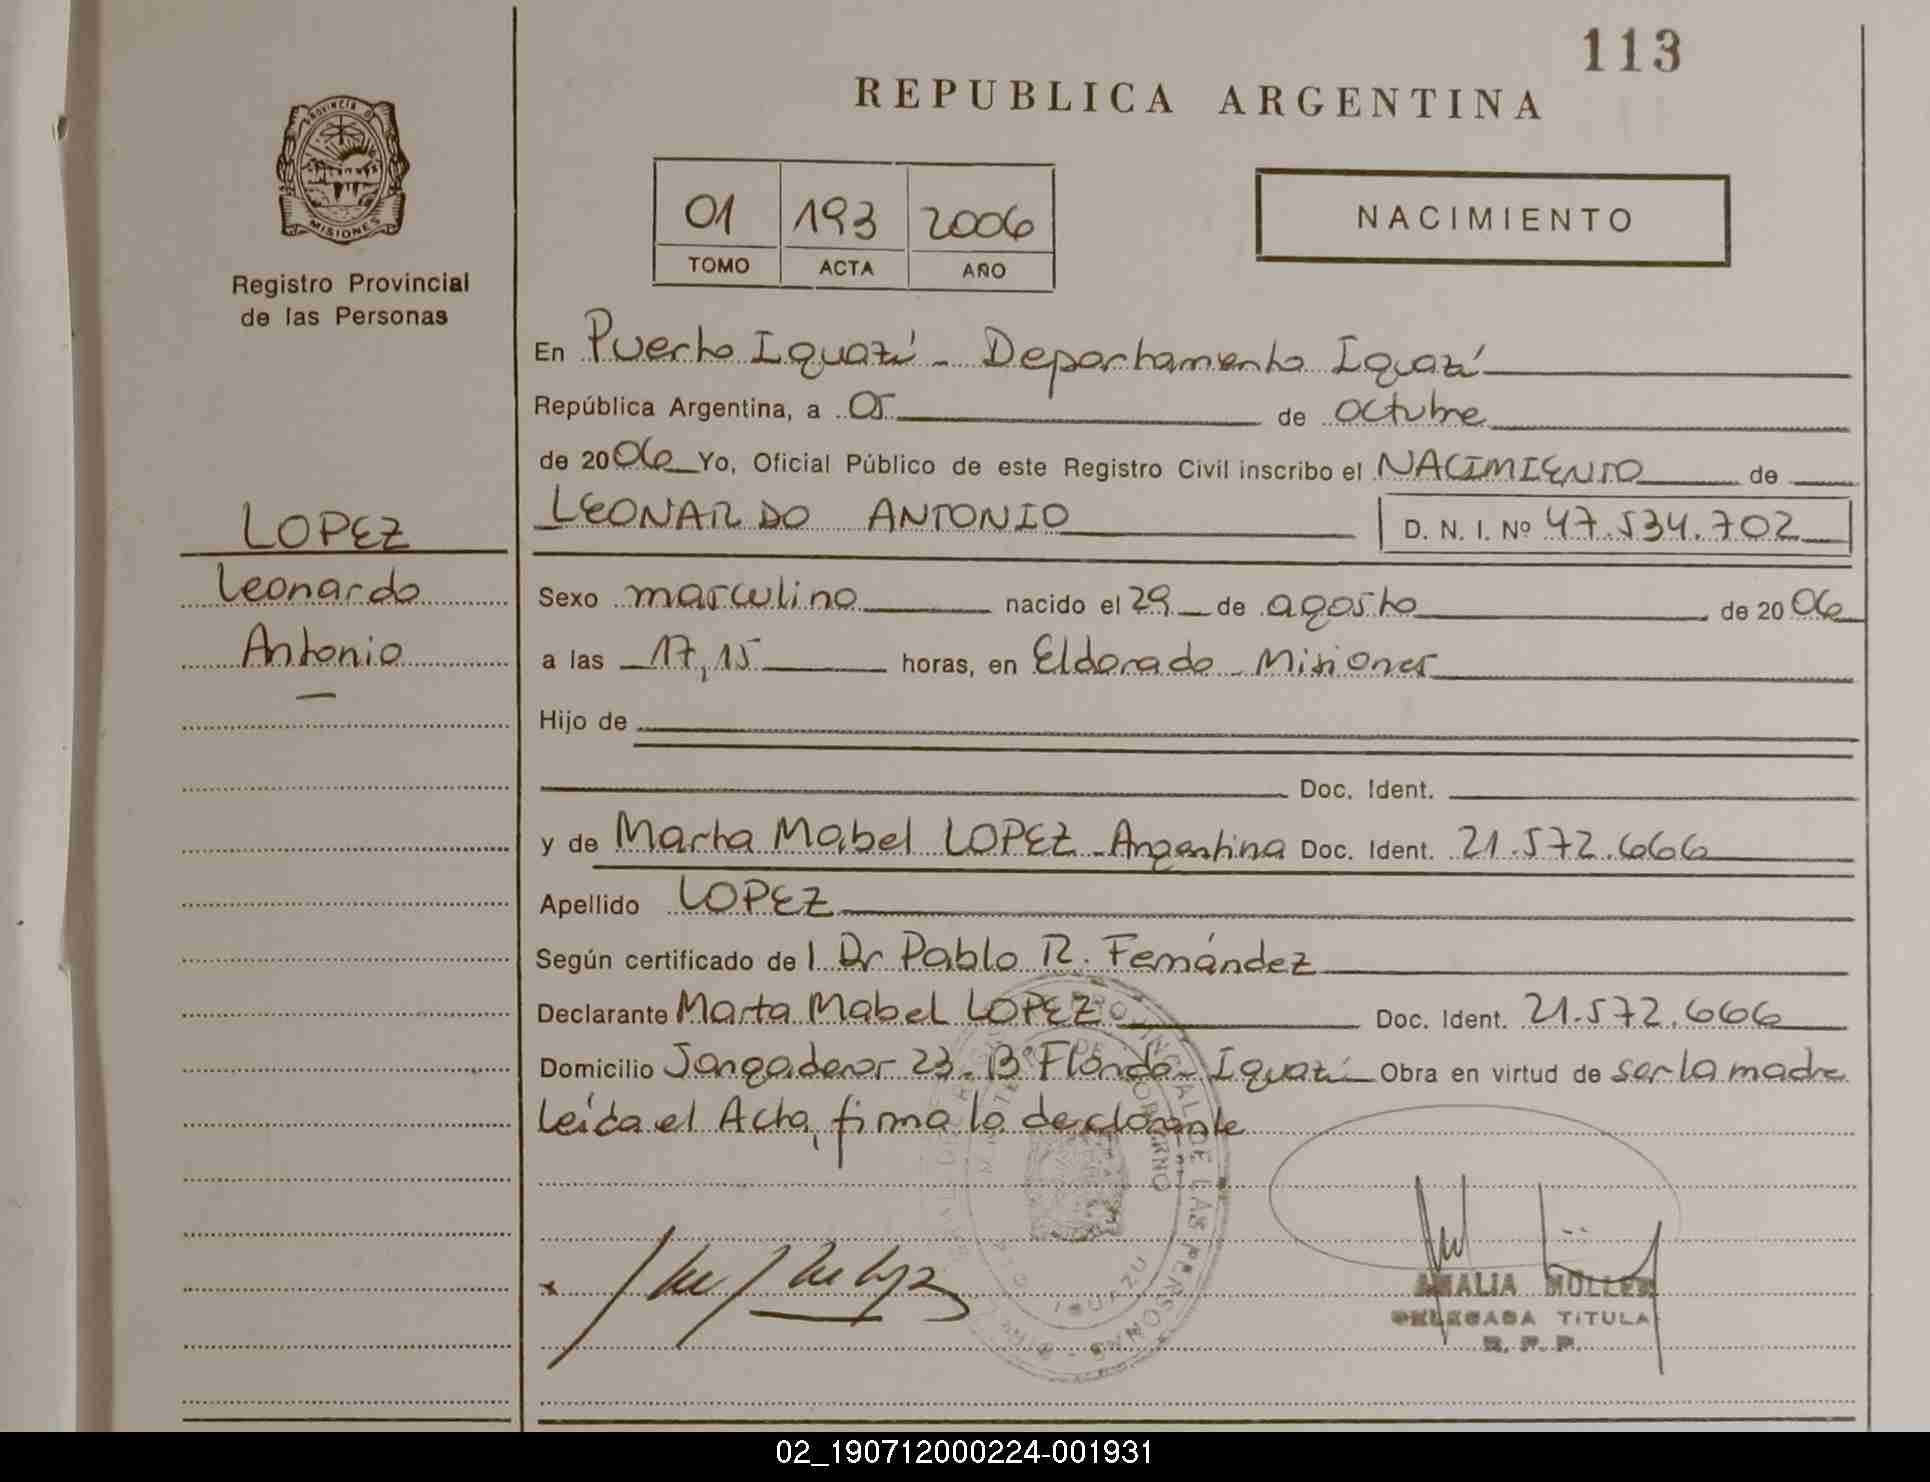 113
REPUBLICA ARGENTINA
PROVINCIA D
MISIONES
Registro Provincial
de las Personas
01 193 2006
TOMO ACTA AÑO
NACIMIENTO
En Puerto Iguazú - Departamento Iguazú
República Argentina, a 05 de octubre
de 2006 Yo, Oficial Público de este Registro Civil inscribo el NACIMIENTO de
LOPEZ
LEONARDO ANTONIO D. N. I. Nº 47.534.702
Leonardo
Sexo masculino nacido el 29 de agosto de 2006
Antonio
a las 17,15 horas, en Eldorado - Misiones
Hijo de
Doc. Ident.
y de Marta Mabel LOPEZ - Argentina Doc. Ident. 21.572.666
Apellido LOPEZ
Según certificado de l Dr Pablo R. Fernández
Declarante Marta Mabel LOPEZ Doc. Ident. 21.572.666
Domicilio Jangaderos 23. Bº Florida - Iguazú Obra en virtud de ser la madre
Leída el Acta, firma la declarante
PROVINCIAL DE LAS PERSONAS
IGUAZU
AMALIA MÜLLER
DELEGADA TITULAR
R. P. P.
02_190712000224-001931